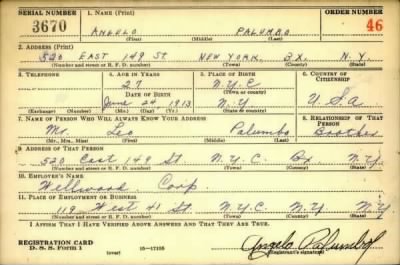 SERIAL NUMBER 1. NAME (Print) ORDER NUMBER
3670 ANGELO PALUMBO 46
(First) (Middle) (Last)
2. ADDRESS (Print)
520 EAST 149 ST. NEW YORK, BX. N.Y.
(Number and street or R. F. D. number) (Town) (County) (State)
3. TELEPHONE 4. AGE IN YEARS 5. PLACE OF BIRTH 6. COUNTRY OF CITIZENSHIP
27 N.Y.C.
DATE OF BIRTH (Town or county)
June 24 1913 N.Y. U.S.A
(Exchange) (Number) (Mo.) (Day) (Yr.) (State or country)
7. NAME OF PERSON WHO WILL ALWAYS KNOW YOUR ADDRESS 8. RELATIONSHIP OF THAT PERSON
Mr. Leo Palumbo Brother
(Mr., Mrs., Miss) (First) (Middle) (Last)
9. ADDRESS OF THAT PERSON
520 East 149 St. N.Y.C. Bx N.Y.
(Number and street or R. F. D. number) (Town) (County) (State)
10. EMPLOYER'S NAME
Wellswood Corp.
11. PLACE OF EMPLOYMENT OR BUSINESS
119 West 41 St. N.Y.C. N.Y. N.Y.
(Number and street or R. F. D. number) (Town) (County) (State)
I AFFIRM THAT I HAVE VERIFIED ABOVE ANSWERS AND THAT THEY ARE TRUE.
REGISTRATION CARD
D. S. S. FORM 1 (over) 16—17105 Angelo Palumbo
(Registrant's signature)